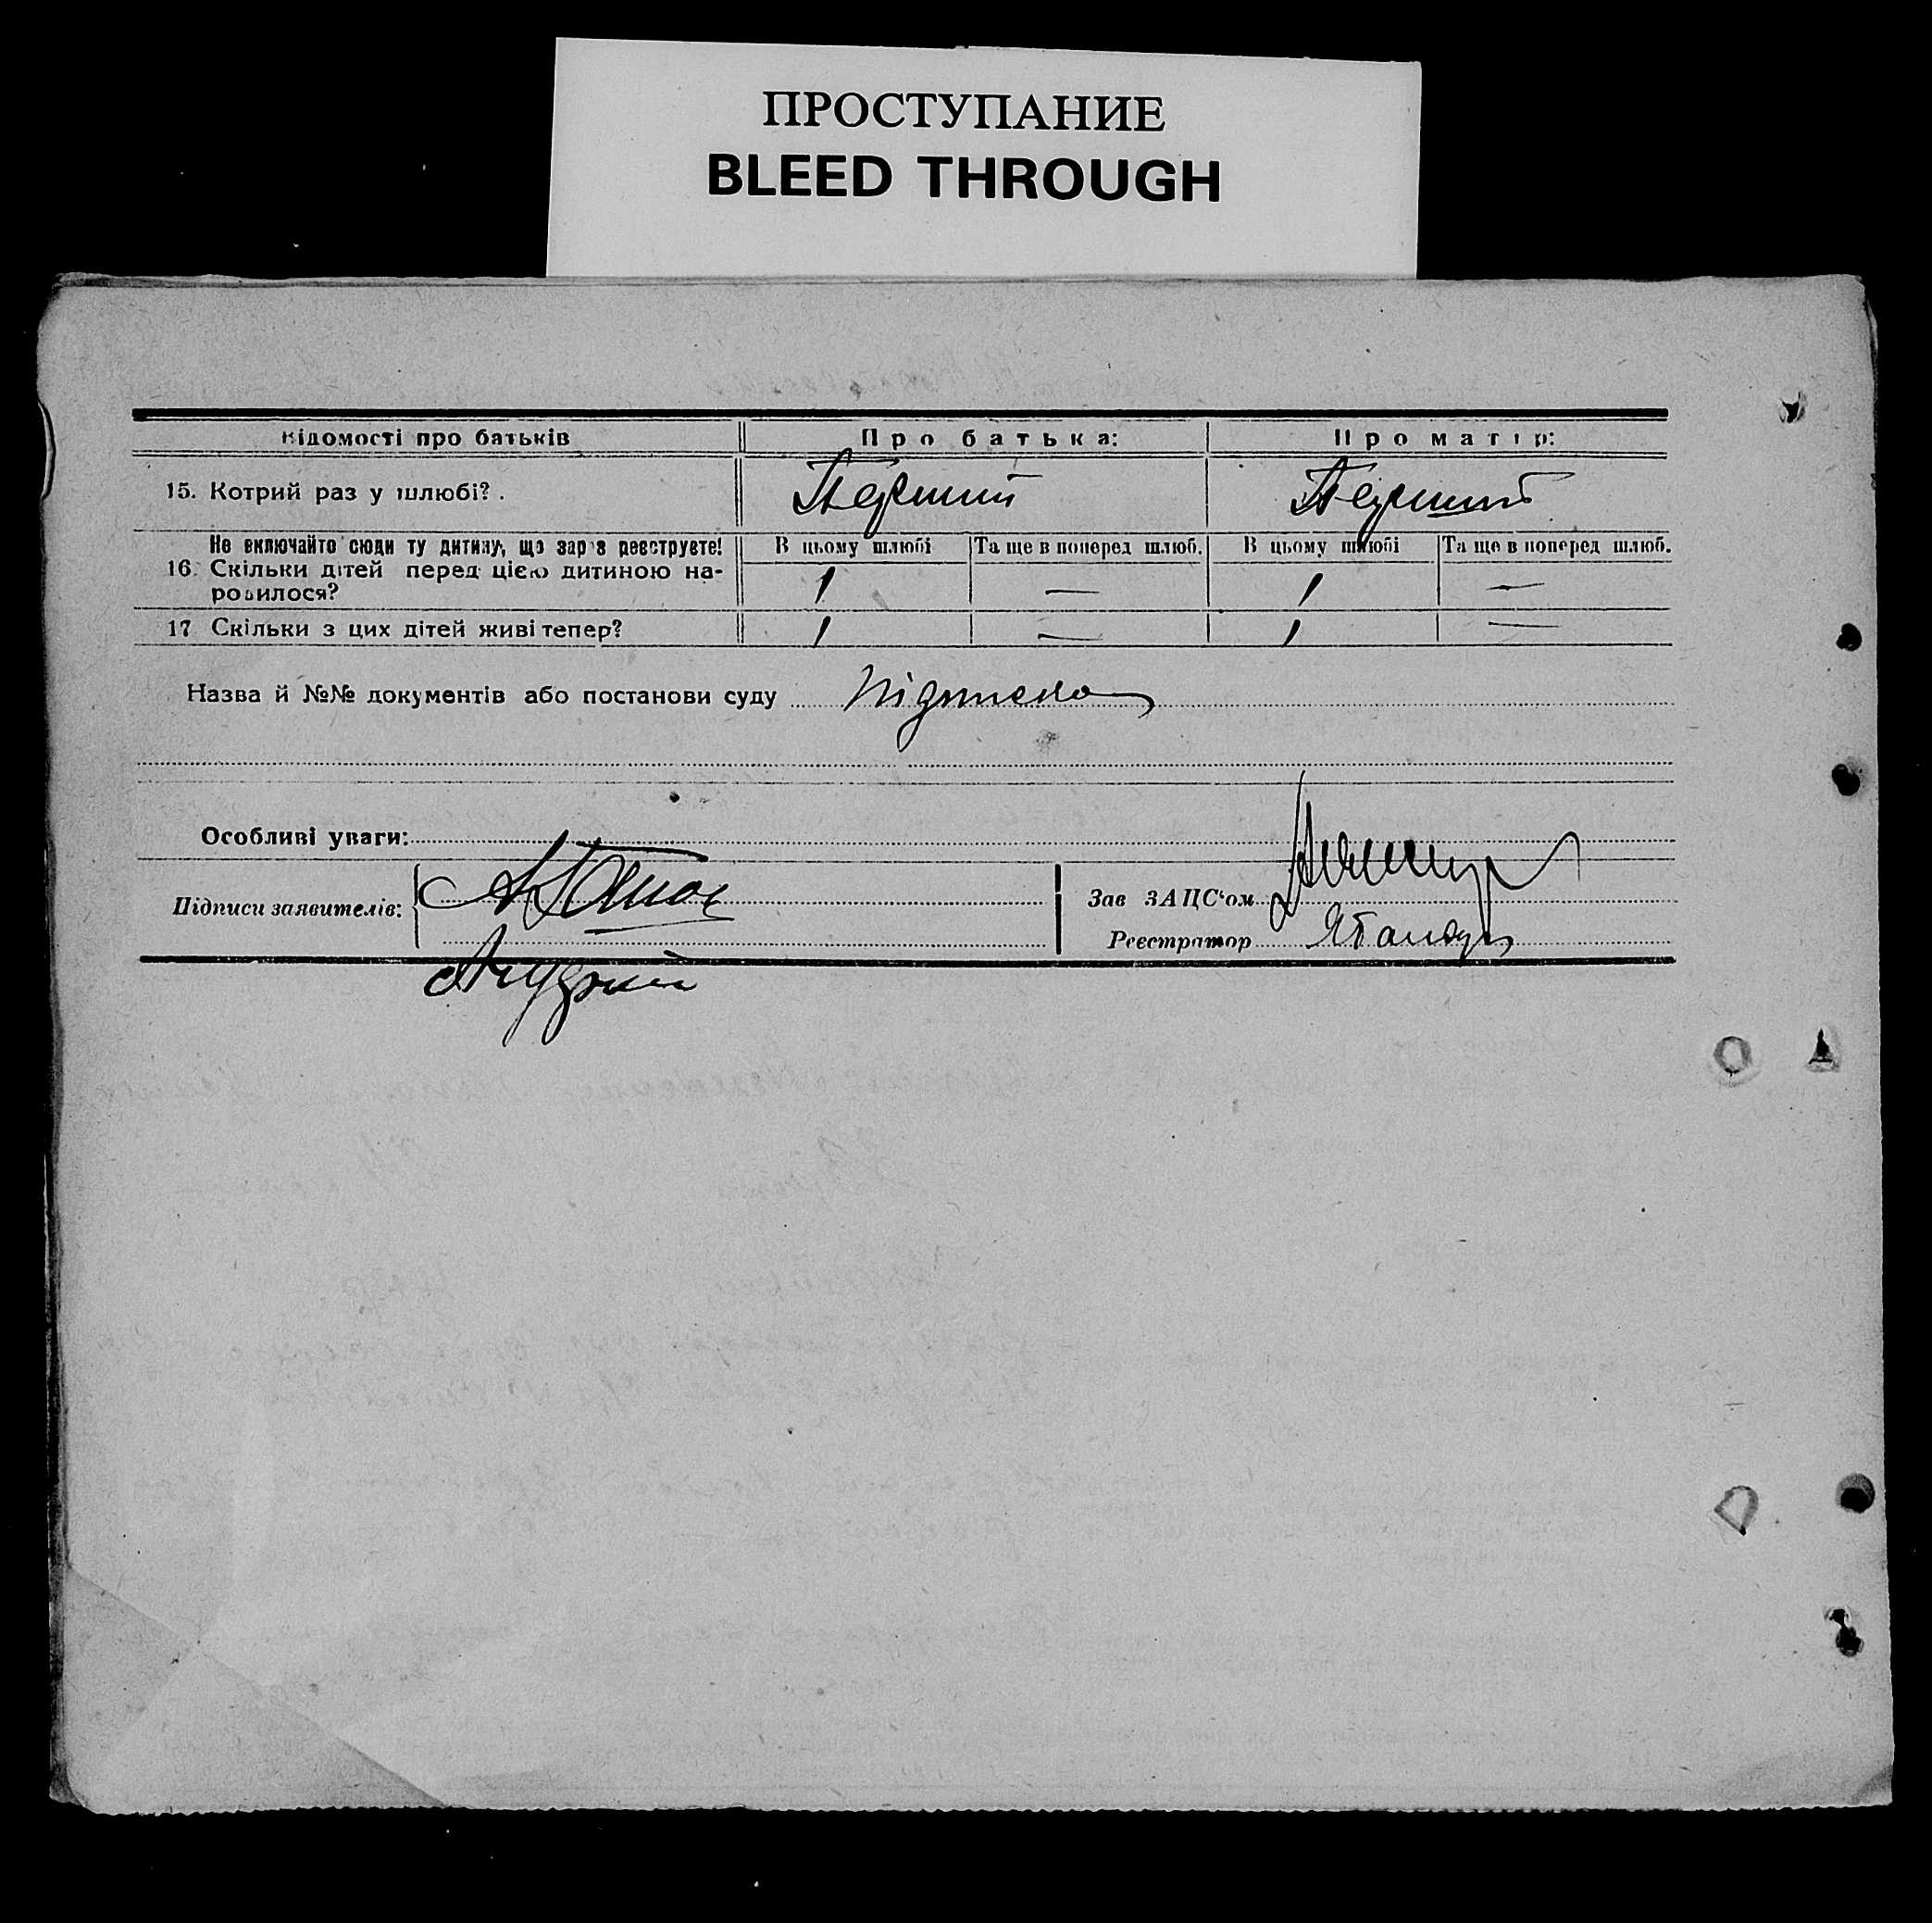 ПРОСТУПАНИЕ
BLEED THROUGH
Відомості про батьків Про батька: Про матір:
15. Котрий раз у шлюбі? . Перший Перший
Не включайте сюди ту дитину, що зараз реєструєте! В цьому шлюбі Та ще в поперед шлюб. В цьому шлюбі Та ще в поперед шлюб.
16. Скільки дітей перед цією дитиною на-
родилося? 1 — 1 —
17 Скільки з цих дітей живі тепер? 1 — 1 —
Назва й №№ документів або постанови суду
Особливі уваги:
Підписи заявителів:
Зав ЗАЦС‘ом
Реєстратор